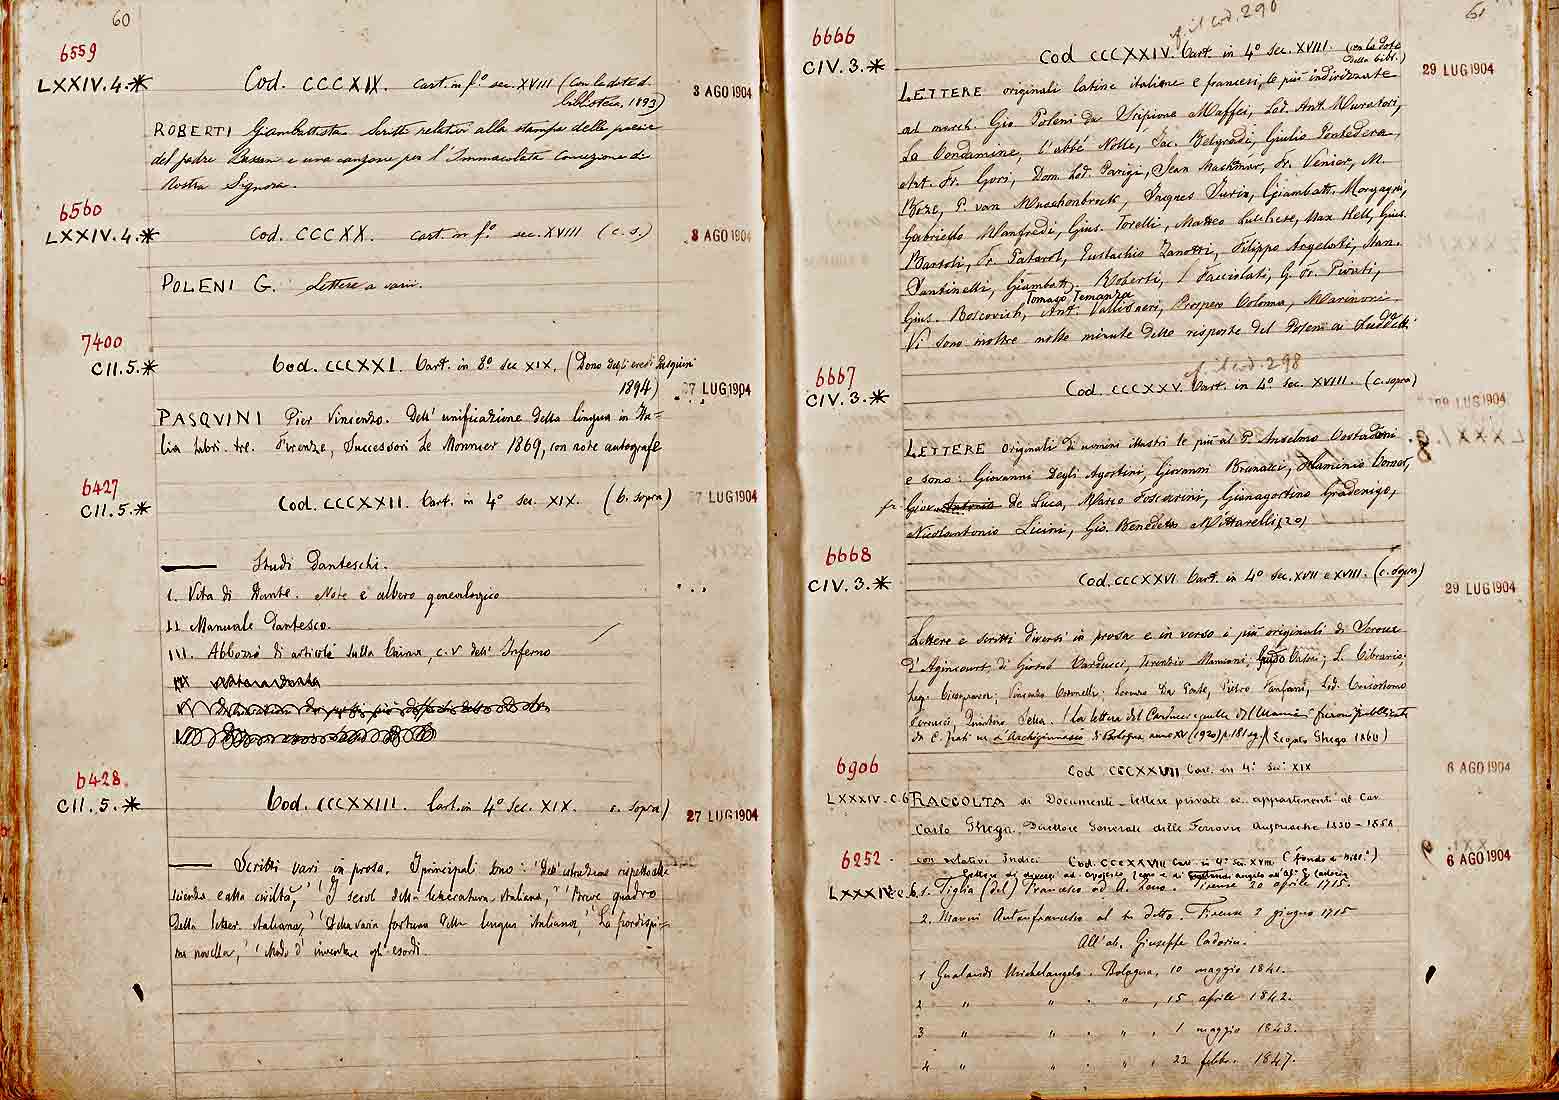 60
6559
LXXIV.4.* Cod. CCCXIX. Cart. in f.° sec. XVIII (con la dote d. 3 AGO 1904
biblioteca, 1893)
ROBERTI Giambattista Scritti relativi alla stampa delle poesie
del padre Bassani e una canzone per l'Immacolata Concezione di
Nostra Signora.
6560
LXXIV.4.* Cod. CCCXX. Cart. in f.° sec. XVIII (c. s.) 3 AGO 1904
POLENI G. Lettere a varii.
7400
CII.5.* Cod. CCCXXI. Cart. in 8.° sec XIX, (Dono degli eredi Pasquini
1894) 27 LUG 1904
PASQVINI Pier Vincenzo. Dell'unificazione della lingua in Ita=
lia Libri tre. Firenze, Successori Le Monnier 1869, con note autografe
6427
CII.5.* Cod. CCCXXII. Cart. in 4° sec. XIX. (c. sopra) 27 LUG 1904
Studi Danteschi.
I. Vita di Dante. Note e albero genealogico
II Manuale Dantesco.
III. Abbozzo di articolo sulla Caina, c. V dell'Inferno
6428
CII.5.* Cod. CCCXXIII. Cart. in 4° sec. XIX. c. sopra) 27 LUG 1904
Scritti vari in prosa. I principali sono: 'Dell'istruzione rispetto alle
scienze e alla civiltà,' 'I secoli della letteratura italiana,' 'Breve quadro
della letter. italiana,' 'Della varia fortuna della lingua italiana,' 'La fiordispi-
na novella,' 'Modo d'inventare gli esordi.
61
f. il cod. 290
6666
CIV.3.* Cod CCCXXIV. Cart. in 4° sec. XVIII. (con la dote 29 LUG 1904
della bibl.)
LETTERE originali latine italiane e francesi, le più indirizzate
al march. Gio Poleni da Scipione Maffei, Lod. Ant. Muratori,
La Condamine, l'abbé Nolle, Jac. Belgradi, Giulio Pontedera,
Ant. Fr. Gori, Dom. Lod. Parigi, Jean Fr. Venier, M.
Boze, P. van Musschenbroek, Jacques Jurin, Giambatt. Morgagni,
Gabriello Manfredi, Gius. Torelli, Matteo Max. Hell, Gius.
Bartoli, Fr. Patarol, Eustachio Zanotti, Filippo Argelati, Nan.
Santinelli, Giambatt. Roberti, I Facciolati, G. Fr. Pivati,
Tomaso Temanza
Gius. Boscovich, Ant. Vallisneri, Prospero Colonna, Marinoni.
Vi sono inoltre molte minute delle risposte del Poleni ai suddetti.
f. il cod. 298
6667
CIV.3.* Cod. CCCXXV. Cart. in 4° sec. XVIII. (c. sopra) 29 LUG 1904
LETTERE originali di uomini illustri le più al P. Anselmo Costadoni
e sono: Giovanni Degli Agostini, Giovanni Brunacci, Flaminio Cornèr,
Giov. Antonio De Luca, Marco Foscarini, Gianagostino Gradenigo,
Nicolantonio Licini, Gio. Benedetto Mittarelli (20)
6668
CIV.3.* Cod. CCCXXVI Cart. in 4° sec. XVII e XVIII. (c. sopra) 29 LUG 1904
Lettere e scritti diversi in prosa e in verso i più originali di Seroux
d'Agincourt, di Giosuè Carducci, Terenzio Mamiani, Guido L. Cibrario,
Vincenzo Coronelli, Lorenzo Da Ponte, Pietro Fanfani, Lod. Crisostomo
Ferrucci, Quintino Sella. (La lettera del Carducci e quella del Mamiani furono pubblicate
da C. Frati in L'Archiginnasio di Bologna anno XV (1920) p. 181 sg.)
6906
Cod CCCXXVII Cart. in 4° Sec. XIX 6 AGO 1904
LXXXIV.C.6 RACCOLTA di Documenti lettere private ec. appartenenti al Cav.
Carlo Ghega, Direttore Generale delle Ferrovie Austriache 1830-1858
con relativi Indici
6252 Cod. CCCXXVIII Cart. in 4° sec. XVIII. 6 AGO 1904
LXXXIV.C.6. 1. Tiglia (del) Francesco ad A. Zeno. Firenze 20 aprile 1715.
2. Marmi Antonfrancesco al sud.detto. Firenze 2 giugno 1715
All'ab. Giuseppe Cadorin.
1 Gualandi Michelangelo. Bologna, 10 maggio 1841.
2 " " " , 15 aprile 1842.
3 " " " , 1 maggio 1843.
4 " " " , 22 febbr. 1847.